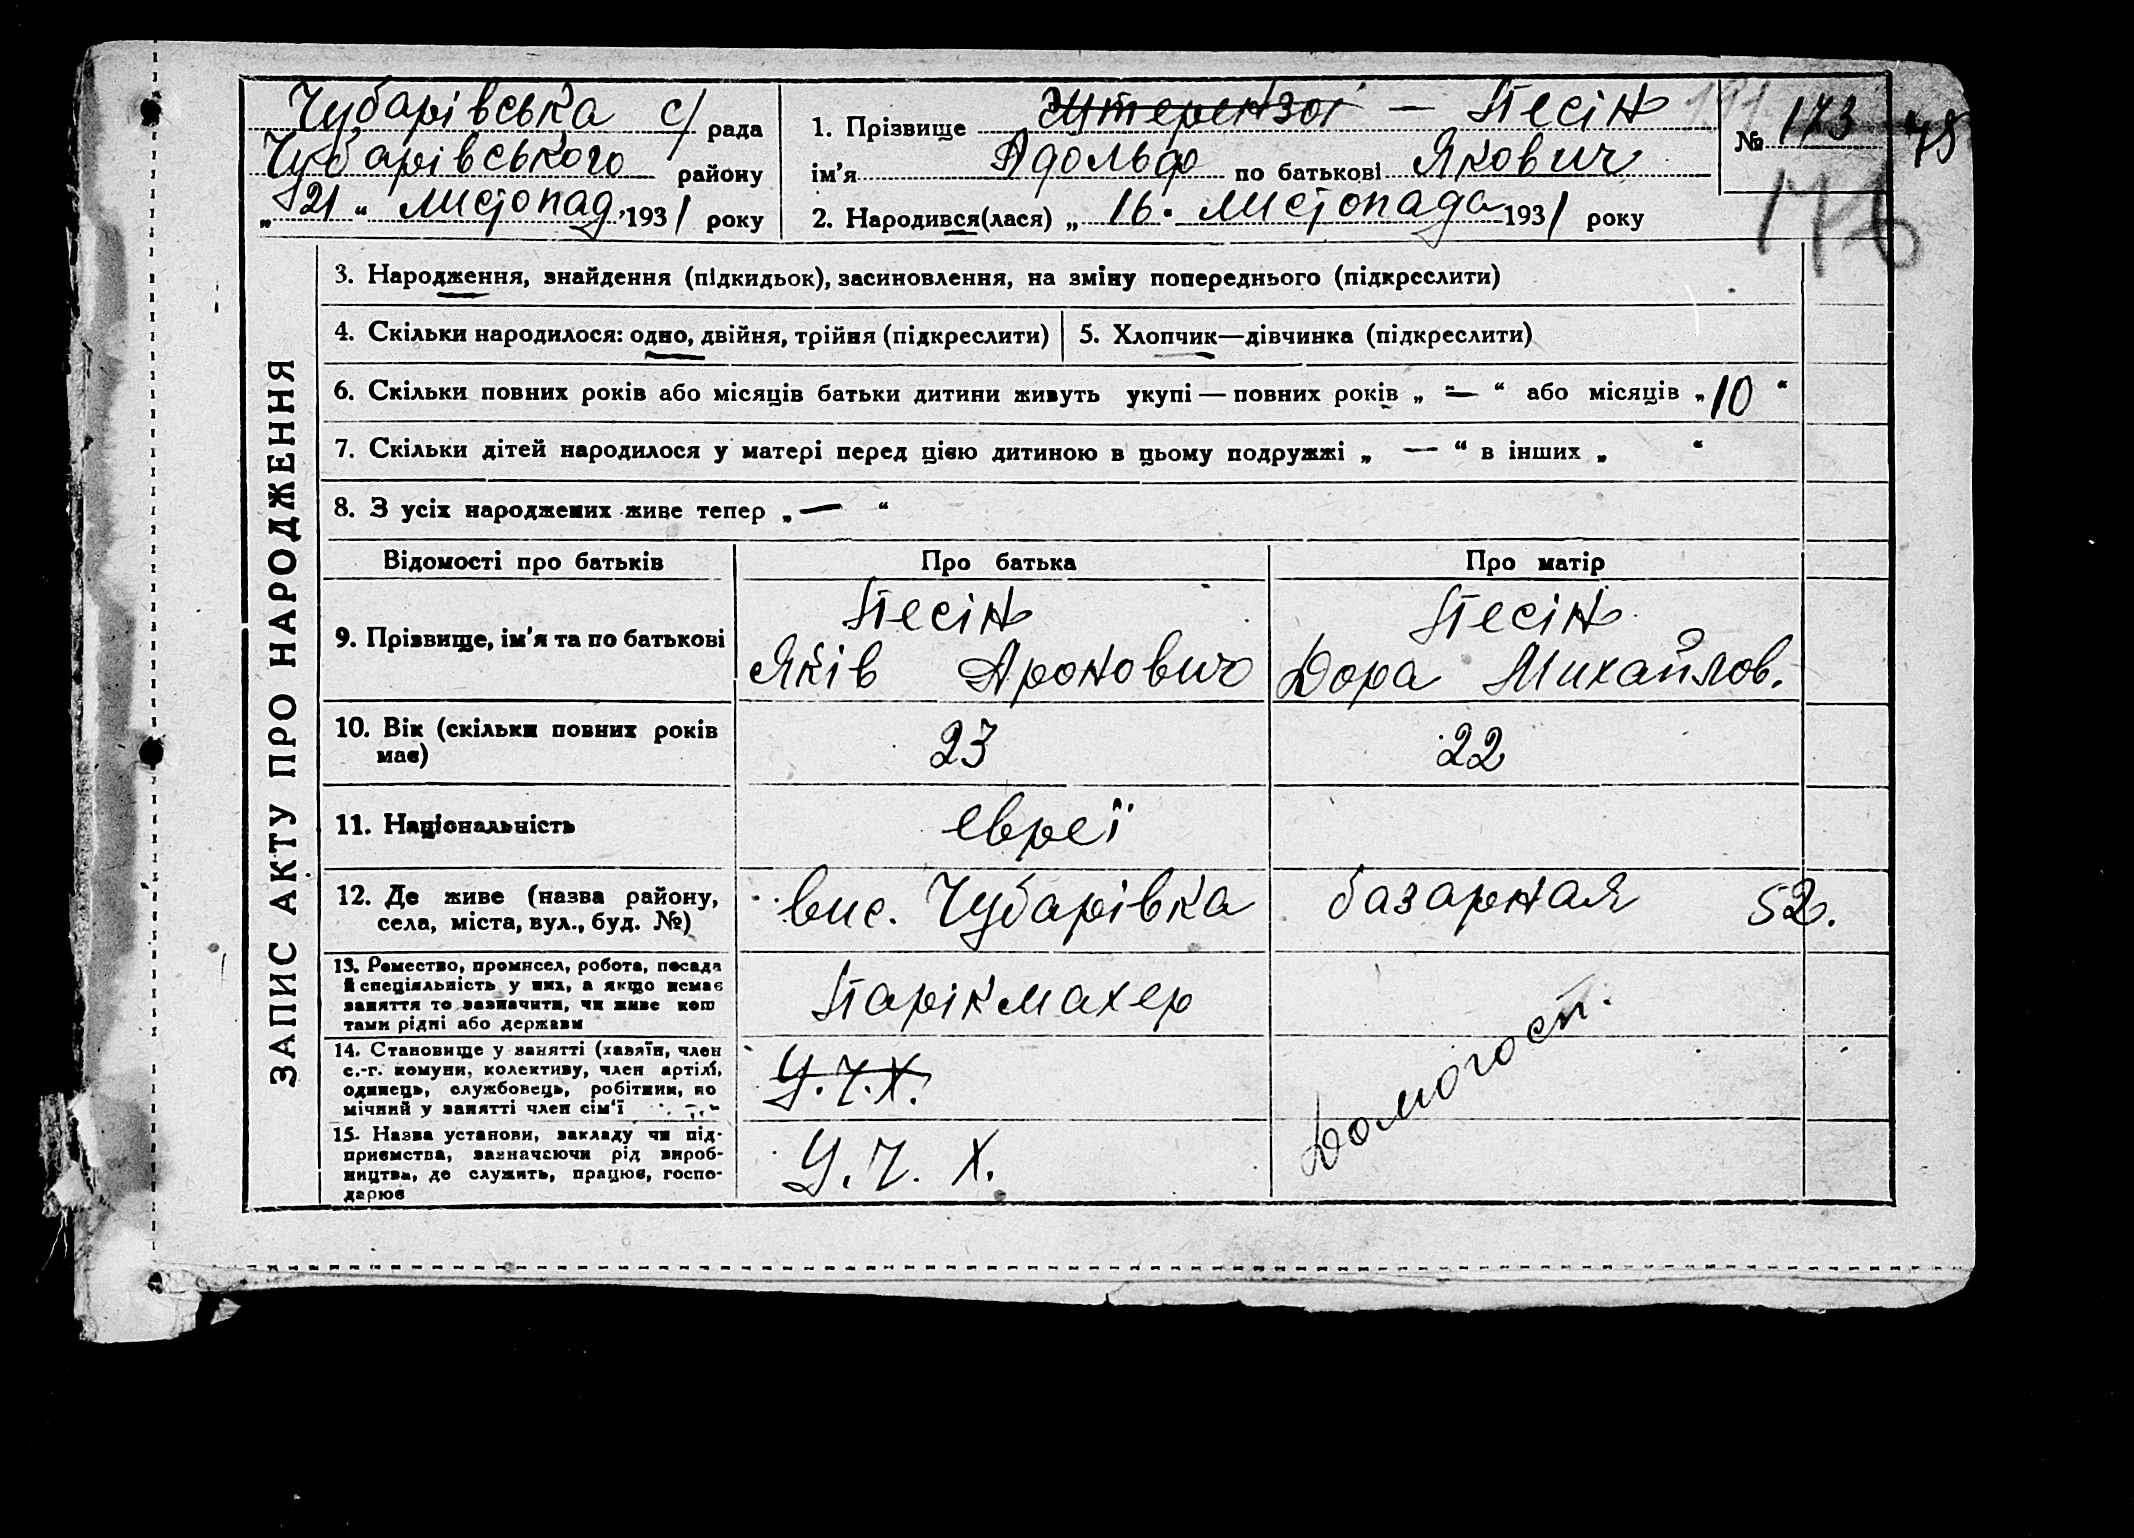 Чубарівська с/ рада
Чубарівського району
„ 21 “ листопад, 1931 року
1. Прізвище — Песін
ім'я Адольф по батькові Якович
2. Народився(лася) „ 16. листопада 1931 року
№ 173
75
176
ЗАПИС АКТУ ПРО НАРОДЖЕННЯ
3. Народження, знайдення (підкидьок), засиновлення, на зміну попереднього (підкреслити)
4. Скільки народилося: одно, двійня, трійня (підкреслити)
5. Хлопчик—дівчинка (підкреслити)
6. Скільки повних років або місяців батьки дитини живуть укупі — повних років „ — “ або місяців „ 10 “
7. Скільки дітей народилося у матері перед цією дитиною в цьому подружжі „ — “ в інших „ “
8. З усіх народжених живе тепер „ — “
Відомості про батьків
Про батька
Про матір
9. Прізвище, ім'я та по батькові
Песін
Яків Аронович
Песін
Дора Михайлов.
10. Вік (скільки повних років
має)
23
22
11. Національність
євреї
12. Де живе (назва району,
села, міста, вул., буд. №)
вис. Чубарівка
базарная 52.
13. Ремество, промисел, робота, посада
й спеціяльність у них, а якщо немає
заняття то зазначити, чи живе кош
тами рідні або держави
Парікмахер
Домогосп.
14. Становище у занятті (хазяїн, член
с.-г. комуни, колективу, член артілі,
одинець, службовець, робітник, по
мічний у занятті член сім'ї
У.Ч.Х.
15. Назва установи, закладу чи під-
приємства, зазначаючи рід вироб-
ництва, де служить, працює, госпо-
дарює
У.Ч. Х.